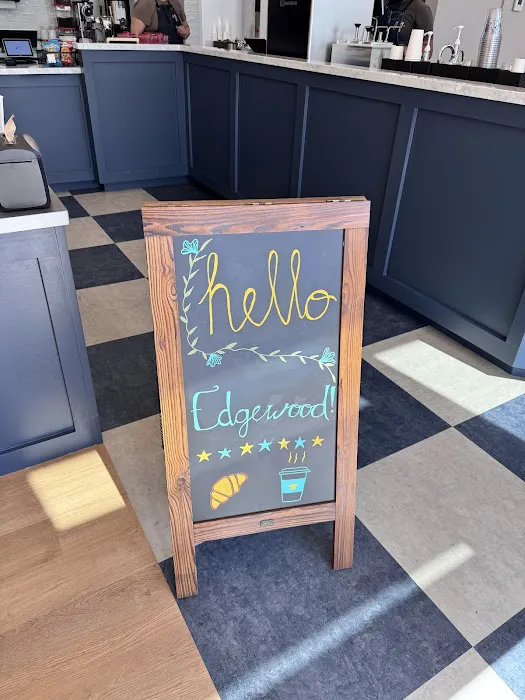 hello
Edgewood!